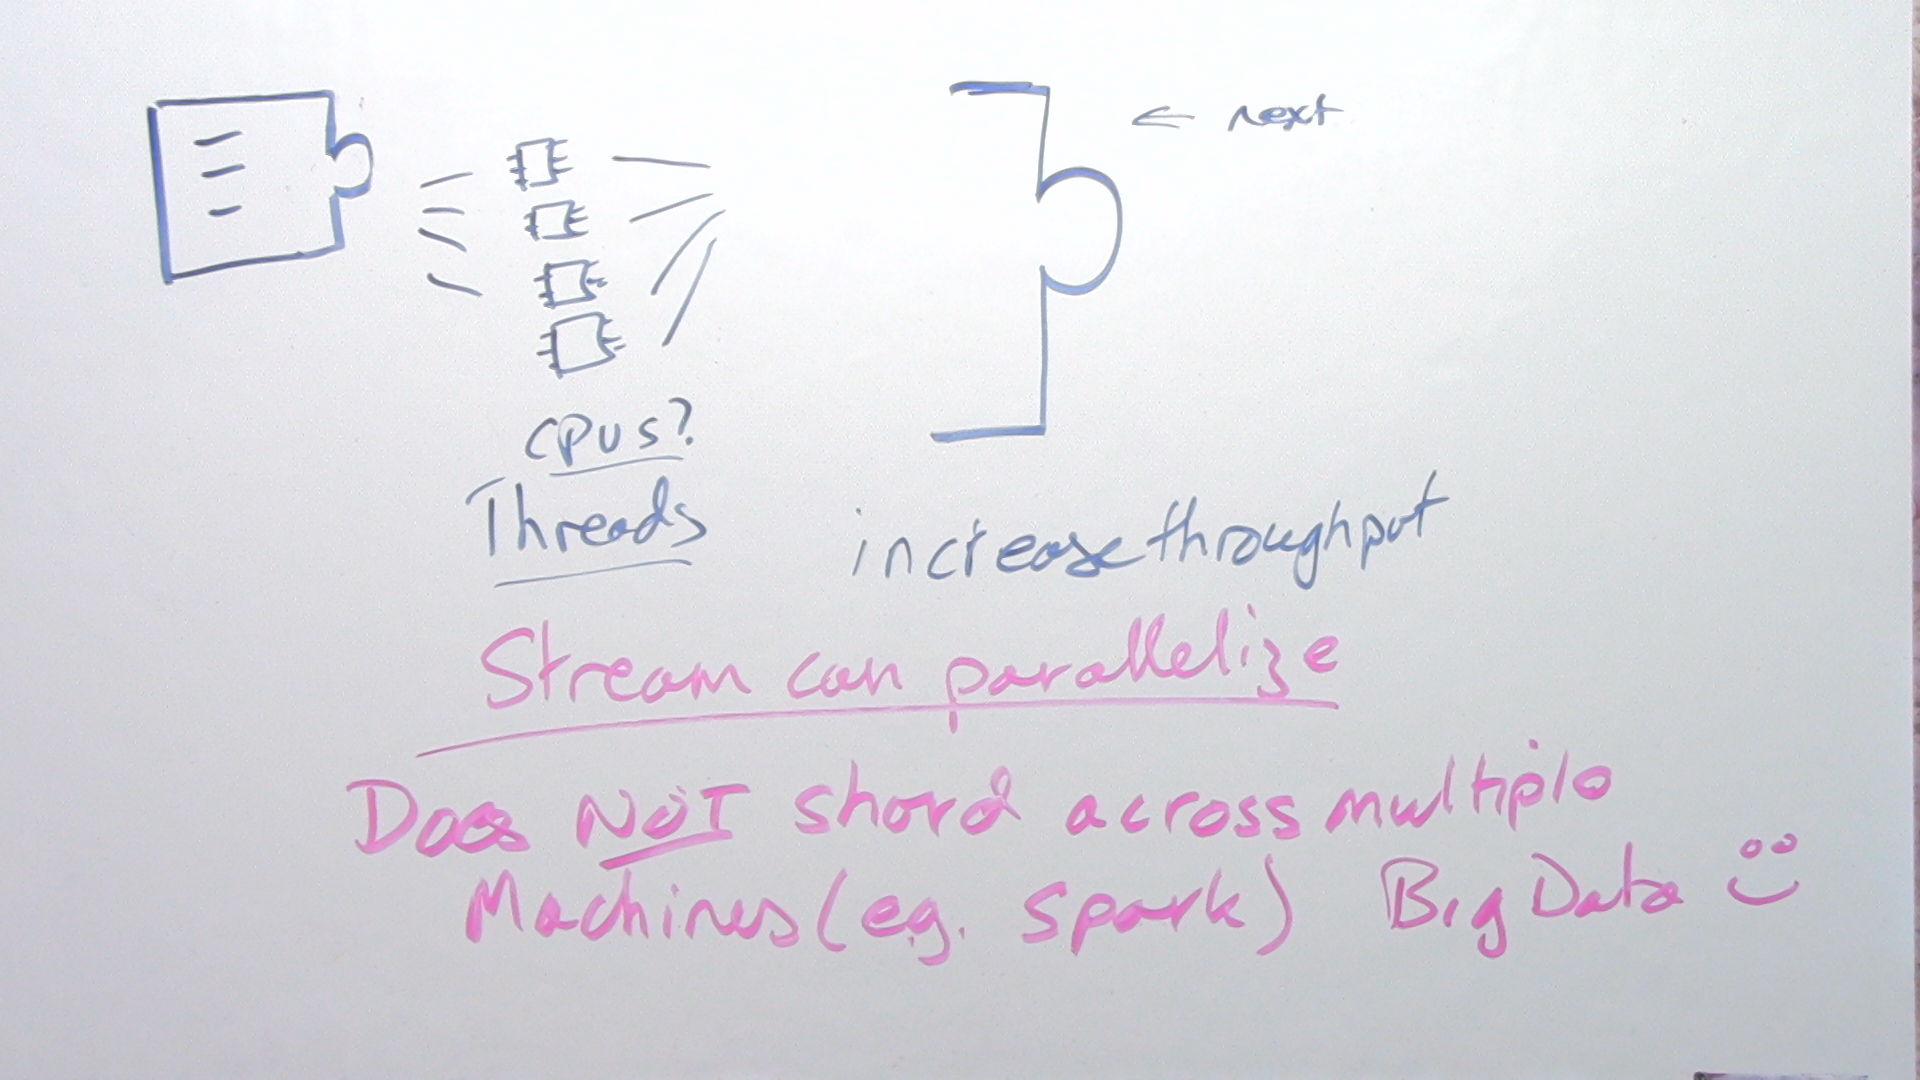 ← next
CPUs?
Threads
increase throughput
Stream can parallelize
Does NOT shard across multiple
Machines (e.g. Spark) Big Data